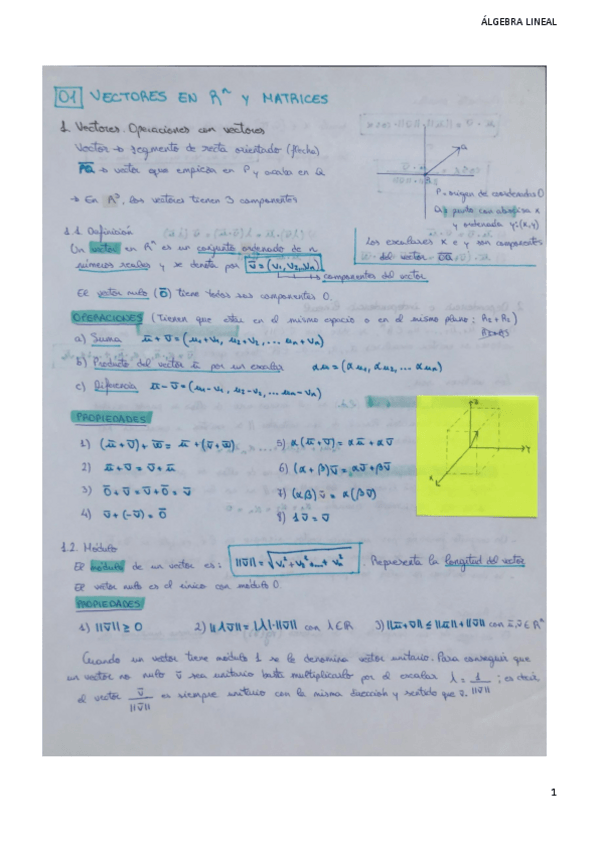 ÁLGEBRA LINEAL
01 VECTORES EN Rⁿ Y MATRICES
1. Vectores. Operaciones con vectores
Vector → segmento de recta orientado (flecha)
PQ → vector que empieza en P y acaba en Q
→ En R³, los vectores tienen 3 componentes
Q
P
P = origen de coordenadas O
Q = punto con abscisa x
y ordenada y: (x,y)
Los escalares x e y son componentes
del vector OQ
1.1. Definición
Un vector en Rⁿ es un conjunto ordenado de n
números reales y se denota por v̄ = (v₁, v₂, ... vₙ)
componentes del vector
El vector nulo (Ō) tiene todas sus componentes 0.
OPERACIONES (Tienen que estar en el mismo espacio o en el mismo plano:
a) Suma ū + v̄ = (u₁+v₁, u₂+v₂, ... uₙ+vₙ)
b) Producto del vector ū por un escalar αu = (αu₁, αu₂, ... αuₙ)
c) Diferencia ū - v̄ = (u₁-v₁, u₂-v₂, ... uₙ-vₙ)
PROPIEDADES
1) (ū+v̄)+w̄ = ū+(v̄+w̄) 5) α(ū+v̄) = αū+αv̄
2) ū+v̄ = v̄+ū 6) (α+β)v̄ = αv̄+βv̄
3) Ō+v̄ = v̄+Ō = v̄ 7) (αβ)v̄ = α(βv̄)
4) v̄+(-v̄) = Ō 8) 1v̄ = v̄
Z
Y
X
1.2. Módulo
El módulo de un vector es: ||v̄|| = √v₁²+v₂²+...+vₙ² Representa la longitud del vector
El vector nulo es el único con módulo 0.
PROPIEDADES
1) ||v̄|| ≥ 0 2) ||λv̄|| = |λ|·||v̄|| con λ∈R 3) ||ū+v̄|| ≤ ||ū||+||v̄|| con ū,v̄ ∈ Rⁿ
Cuando un vector tiene módulo 1 se le denomina vector unitario. Para conseguir que
un vector no nulo v̄ sea unitario basta multiplicarlo por el escalar λ = 1/||v̄||; es decir,
el vector v̄/||v̄|| es siempre unitario con la misma dirección y sentido que
1